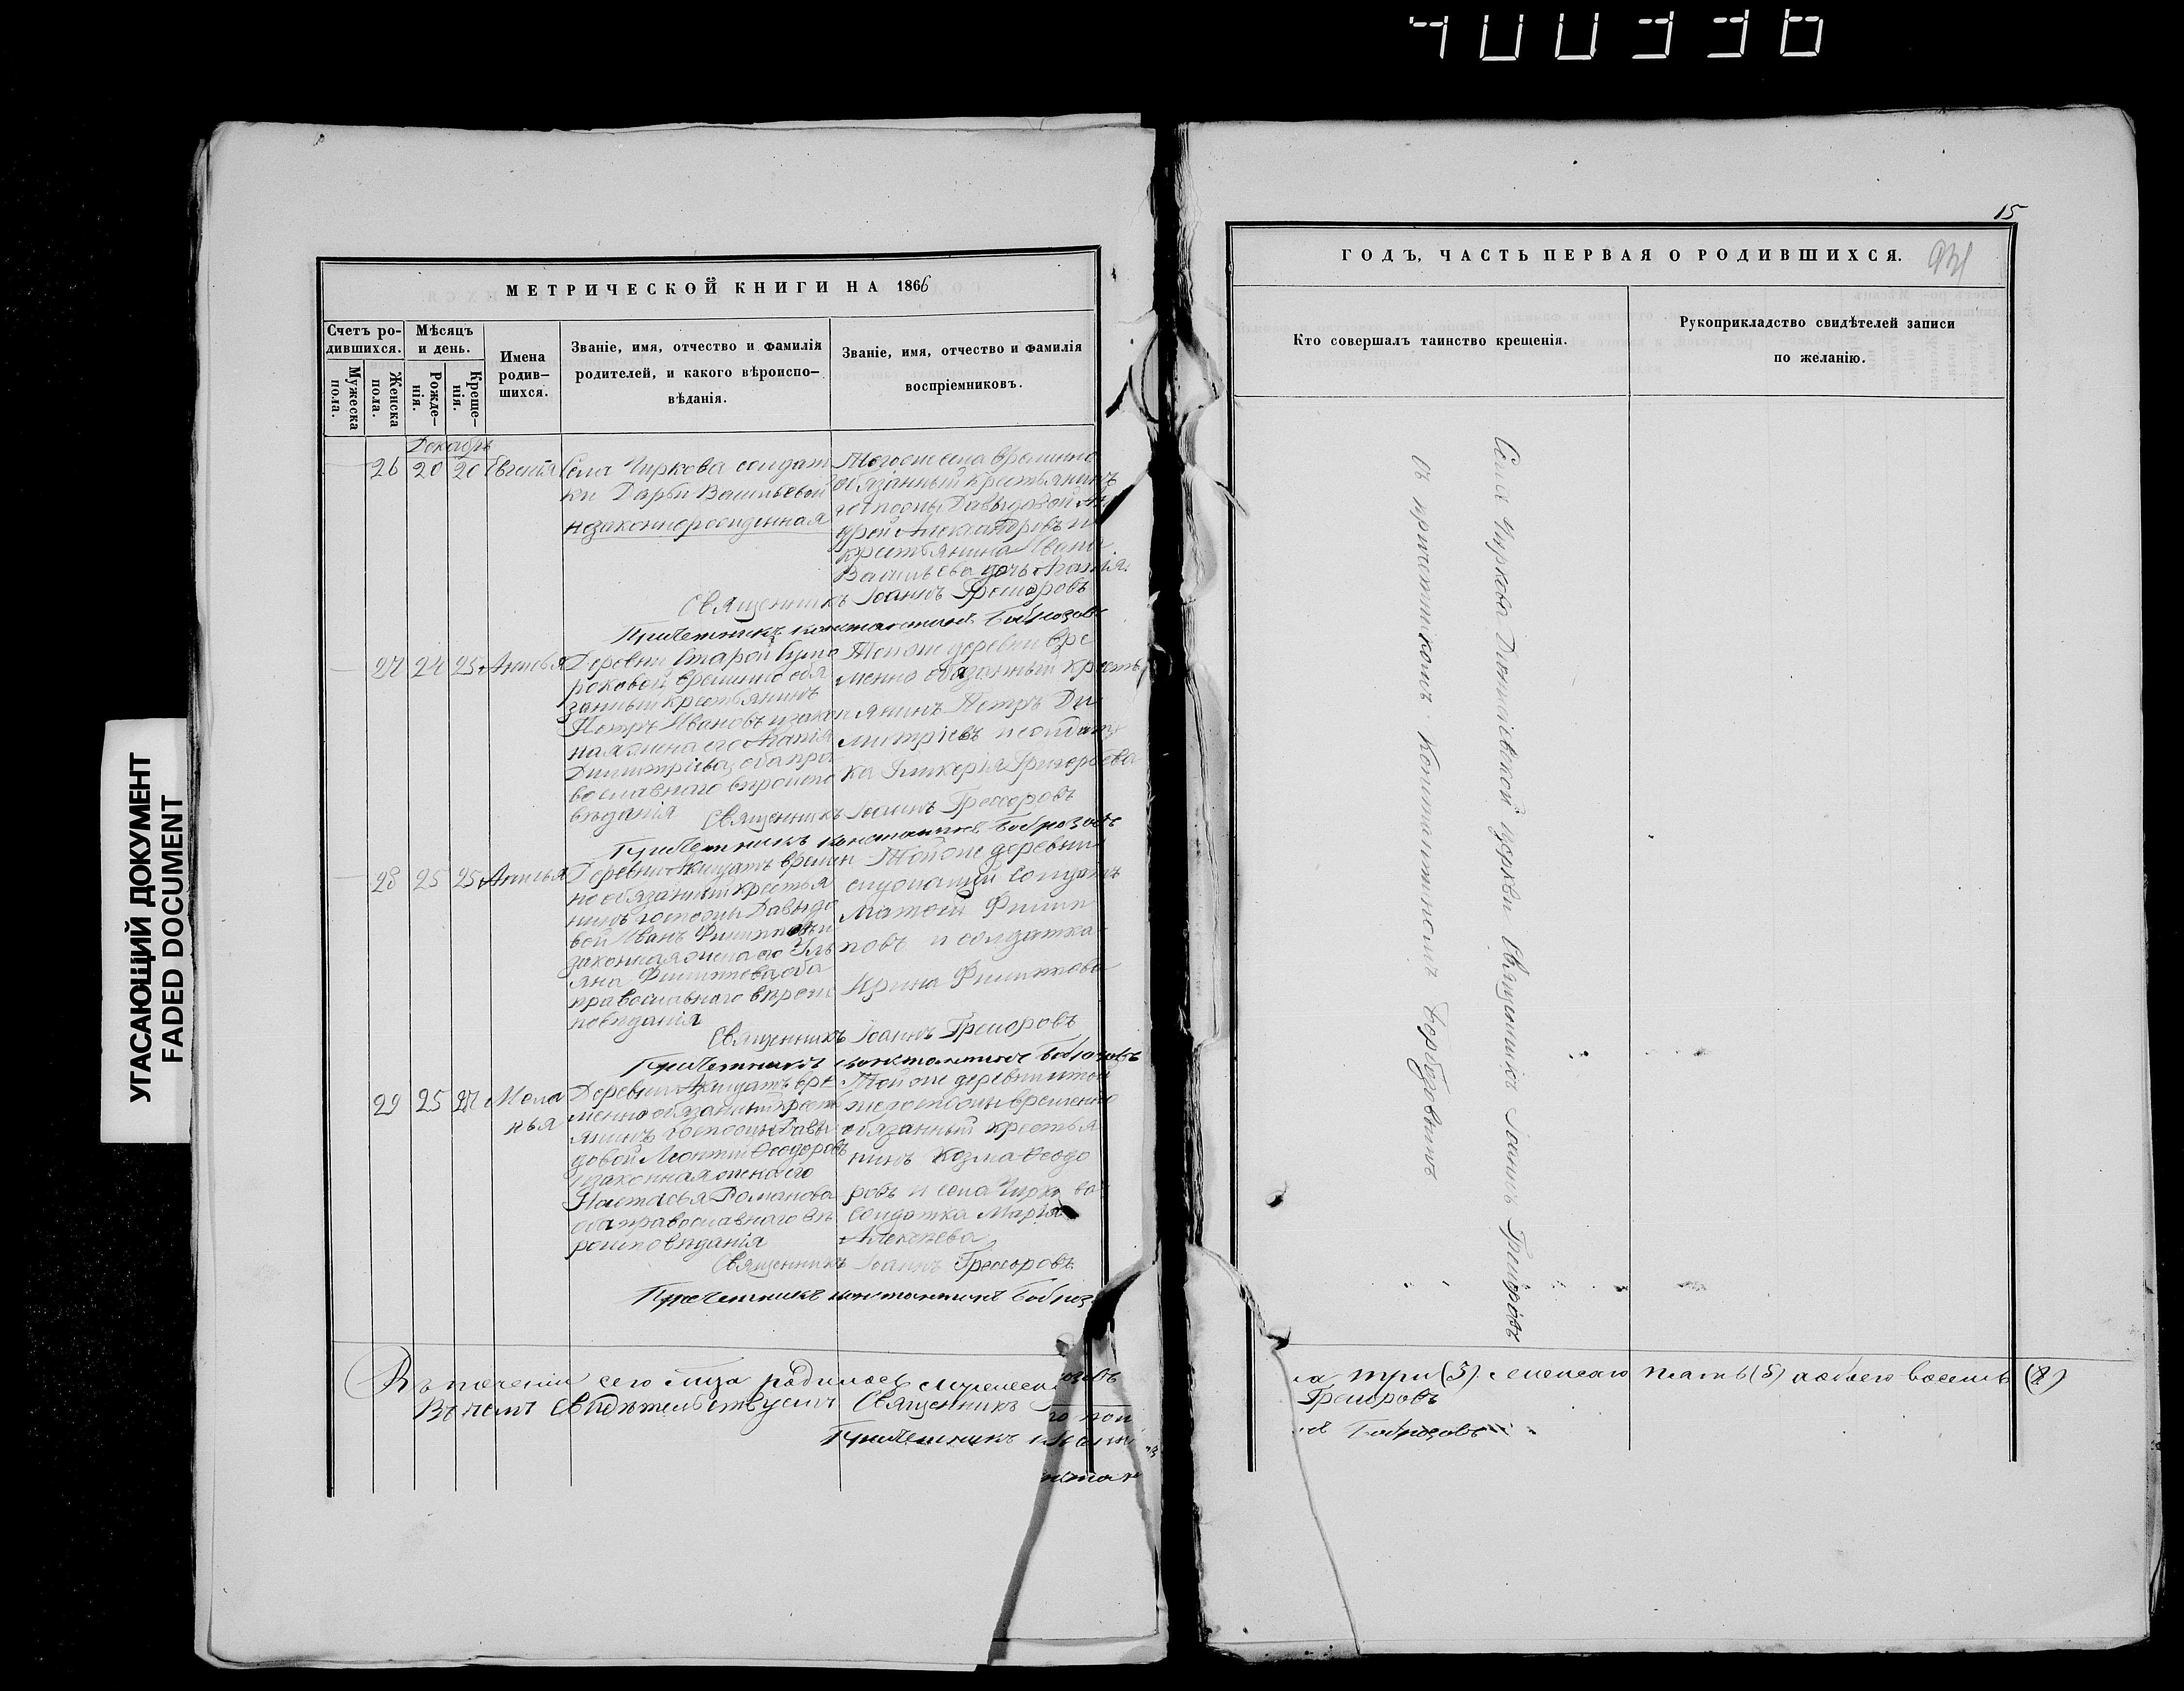 400336
УГАСАЮЩИЙ ДОКУМЕНТ
FADED DOCUMENT
МЕТРИЧЕСКОЙ КНИГИ НА 1866
Счетъ ро-
дившихся.
Мужеска
пола.
Женска
пола.
Мѣсяцъ
и день.
Рожде-
нія.
Креще-
нія.
Имена
родив-
шихся.
Званіе, имя, отчество и фамилія
родителей, и какого вѣроиспо-
вѣданія.
Званіе, имя, отчество и фамилія
воспріемниковъ.
Декабрь
26 20 20 Евгенія
Села Чиркова солдат
ки Дарьи Васильевой
незаконнорожденная
Тогоже села временно
обязанный крестьянинъ
госпожи Давыдовой Ан
дрей Александровъ и
крестьянина Ивана
Васильева дочь Агафія.
Священникъ Іоаннъ Григоровъ
Причетникъ Константинъ
27 24 25 Анисья
Деревни Старой
временно обя
занный крестьянинъ
Петръ Ивановъ и закон
ная жена его Агафія
Димитріева, оба пра
вославнаго вѣроиспо
вѣданія
Той же деревни вре
менно обязанный кресть
янинъ Петръ Ди
митріевъ и солдат
ка Гликерія Григорьева
Священникъ Іоаннъ Григоровъ
Причетникъ Константинъ
28 25 25 Анисья
Деревни времен
но обязанный крестья
нинъ госпожи Давыдо
вой Иванъ Филипповъ и
законная жена его Уль
яна Филиппова, оба
православнаго вѣроис
повѣданія
Той же деревни
служащій солдатъ
Матвей Филип
повъ и солдатка
Ирина Филиппова
Священникъ Іоаннъ Григоровъ
Причетникъ Константинъ
29 25 27 Мела
нья
Деревни вре
менно обязанный кресть
янинъ госпожи Давы
довой Леонтій Ѳеодоровъ
и законная жена его
Настасья Романова
оба православнаго вѣ
роисповѣданія
Той же деревни и той
же госпожи временно
обязанный крестья
нинъ Козма Ѳеодо
ровъ и села Чиркова
солдатка Марія
Алексѣева
Священникъ Іоаннъ Григоровъ
Причетникъ Константинъ
Въ теченіи сего м-ца родилось мужеска
Въ чемъ свидѣтельствуемъ Священникъ
Причетникъ
15
ГОДЪ, ЧАСТЬ ПЕРВАЯ О РОДИВШИХСЯ.
Кто совершалъ таинство крещенія.
Рукоприкладство свидѣтелей записи
по желанію.
Села Чиркова церкви Священникъ Іоаннъ Григоровъ
съ причетникомъ Константиномъ
три (3) женскаго пять (5) а обоего восемь (8)
Григоровъ